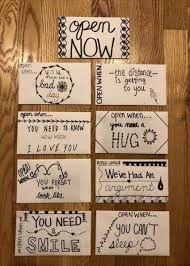 open
NOW
open when...
you
have had
a
bad
day
OPEN WHEN
-the distance-
is getting
to you
open when...
YOU NEED TO
KNOW HOW
MUCH
I LOVE YOU
open when...
you need a
HUG
OPEN
WHEN
YOU FORGET
We've Had An
argument
YOU NEED
A
SMILE
OPEN WHEN...
YOU CAN'T
sleep